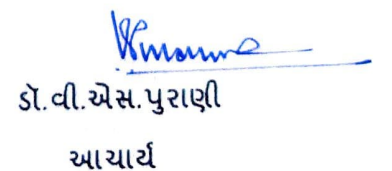 ડૉ.વી.એસ.પુરાણી
આચાર્ય